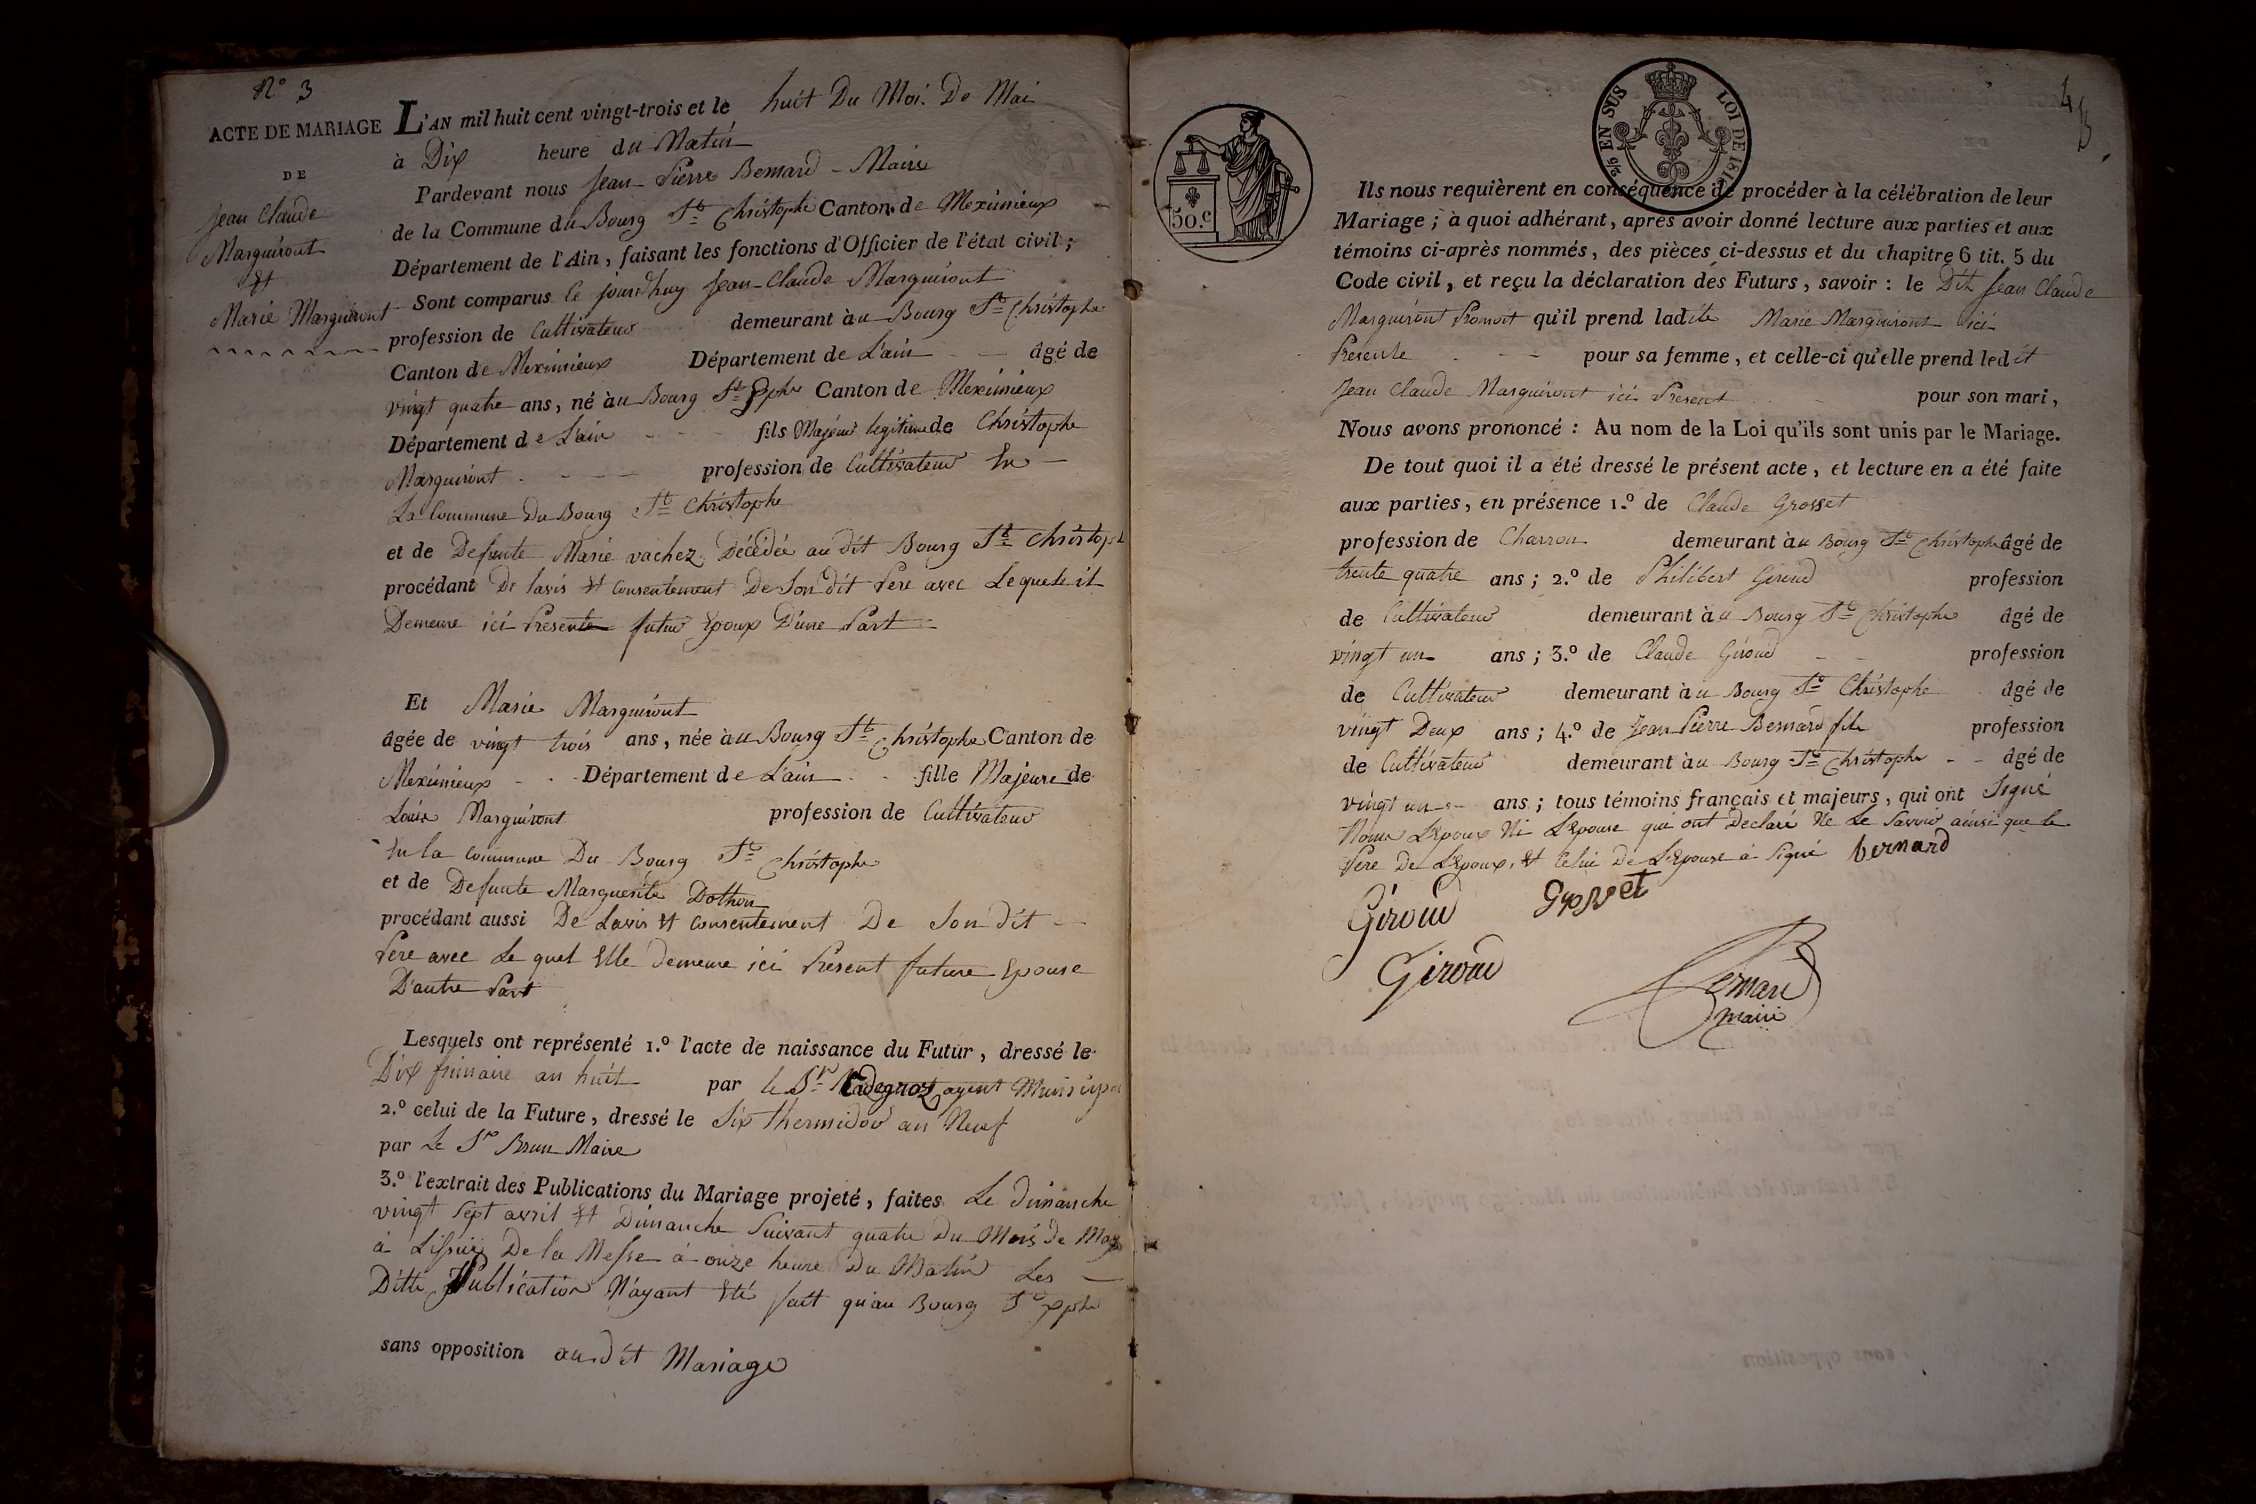 N.º 3
ACTE DE MARIAGE
DE
Jean Claude
Marguiront
Et
Marie Marguiront
L'AN mil huit cent vingt-trois et le huit Du Moi. De Mai
à Dix heure du Matin
Pardevant nous Jean-Pierre Bernard - Maire
de la Commune du Bourg St Christophe Canton de Meximieux
Département de l'Ain, faisant les fonctions d'Officier de l'état civil;
Sont comparus le jourdhuy Jean-Claude Marguiront
profession de Cultivateur demeurant àu Bourg St Christophe
Canton de Meximieux Département de L'ain âgé de
vingt quatre ans, né àu Bourg St Xphe Canton de Meximieux
Département de L'ain fils Majeur legitime de Christophe
Marguiront profession de Cultivateur En
La Commune Du Bourg St Christophe
et de Defunte Marie vachez Décédée au dit Bourg St Christoph
procédant De lavis Et Consentement De Son dit Pere avec Lequele il
Demeure ici Presente futur Epoux D'une Part
Et Marie Marguiront
âgée de vingt trois ans, née àu Bourg St Christophe Canton de
Meximieux Département de L'ain fille Majeure de
Louis Marguiront profession de Cultivateur
En la Commune Du Bourg St Christophe
et de Defunte Marguerite Dothon
procédant aussi De Lavis Et Consentement De Son Dit
Pere avec Le quel Elle demeure ici Présent future Epouse
D'autre Part
Lesquels ont représenté 1.º l'acte de naissance du Futur, dressé le
Dix frimaire an huit par le Sr agent Municipal
2.º celui de la Future, dressé le Six thermidor an Neuf
par Le Sr Brun Maire
3.º l'extrait des Publications du Mariage projeté, faites Le Dimanche
vingt sept avril Et Dimanche Suivant quatre Du Mois de May
à Lissuie De la Messe à onze heure Du Matin Les
Ditte Publication N'ayant Eté fait qu'au Bourg St Xphe
sans opposition audit Mariage
50.c
2/5 EN SUS
LOI DE 1816
43
Ils nous requièrent en conséquence de procéder à la célébration de leur
Mariage; à quoi adhérant, après avoir donné lecture aux parties et aux
témoins ci-après nommés, des pièces ci-dessus et du chapitre 6 tit. 5 du
Code civil, et reçu la déclaration des Futurs, savoir: le Dit Jean Claude
Marguiront Promoit qu'il prend ladite Marie Marguiront ici
Presente pour sa femme, et celle-ci qu'elle prend ledit
Jean Claude Marguiront ici Présent pour son mari,
Nous avons prononcé: Au nom de la Loi qu'ils sont unis par le Mariage.
De tout quoi il a été dressé le présent acte, et lecture en a été faite
aux parties, en présence 1.º de Claude Grosset
profession de Charron demeurant àu Bourg St Christophe âgé de
trente quatre ans; 2.º de Philibert Giroud profession
de Cultivateur demeurant àu Bourg St Christophe âgé de
vingt un ans; 3.º de Claude Giroud profession
de Cultivateur demeurant àu Bourg St Christophe âgé de
vingt Deux ans; 4.º de Jean Pierre Bernard fils profession
de Cultivateur demeurant àu Bourg St Christophe âgé de
vingt un ans; tous témoins français et majeurs, qui ont Signé
Nous L'Epoux Ni L'Epouse qui ont Declaré Ne Le Savoir ainsi que le
Pere De L'Epoux, Et Celui De L'Epouse à Signé bernard
Giroud Grosset
Giroud
Bernard
maire